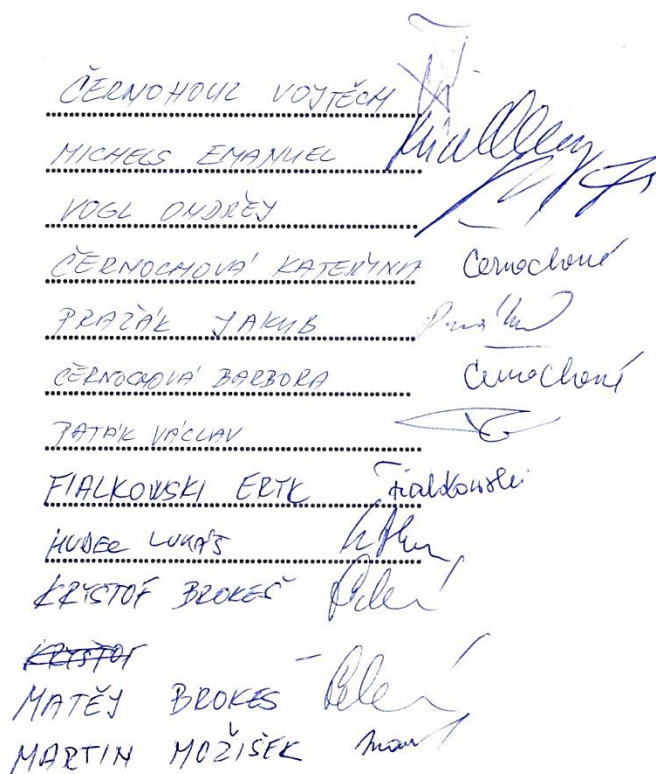 ČERNOHOUZ VOJTĚCH
MICHELS EMANUEL
VOGL ONDŘEJ
ČERNOCHOVÁ KATEŘINA Černochová
PRAŽÁK JAKUB
ČERNOCHOVÁ BARBORA Černochová
PATÁK VÁCLAV
FIALKOWSKI ERIK Fialkowski
HUDEC LUKÁŠ
KRYŠTOF BROKEŠ
KRYŠTOF
MATĚJ BROKEŠ
MARTIN MOŽÍŠEK